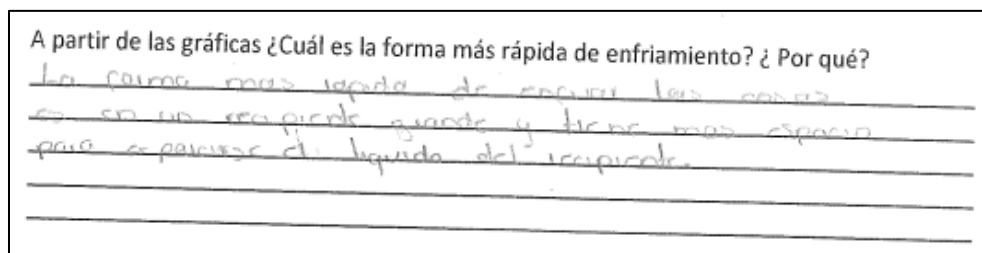 A partir de las gráficas ¿Cuál es la forma más rápida de enfriamiento? ¿ Por qué?
La forma mas rapida de enfriar las cosas
es en un recipiente grande y tiene mas espacio
para esparcirse el liquido del recipiente.